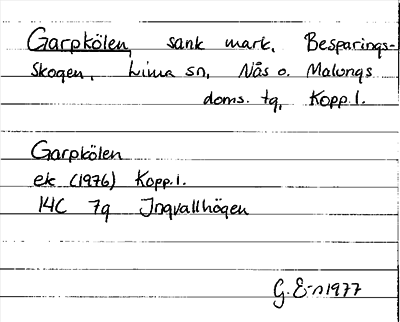 Garpkölen, sank mark, Besparings-
skogen, Lima sn, Nås o. Malungs
doms. tg, Kopp.l.
Garpkölen
ek (1976) Kopp.l.
14C 7g Ingvallhögen
G. E-n 1977